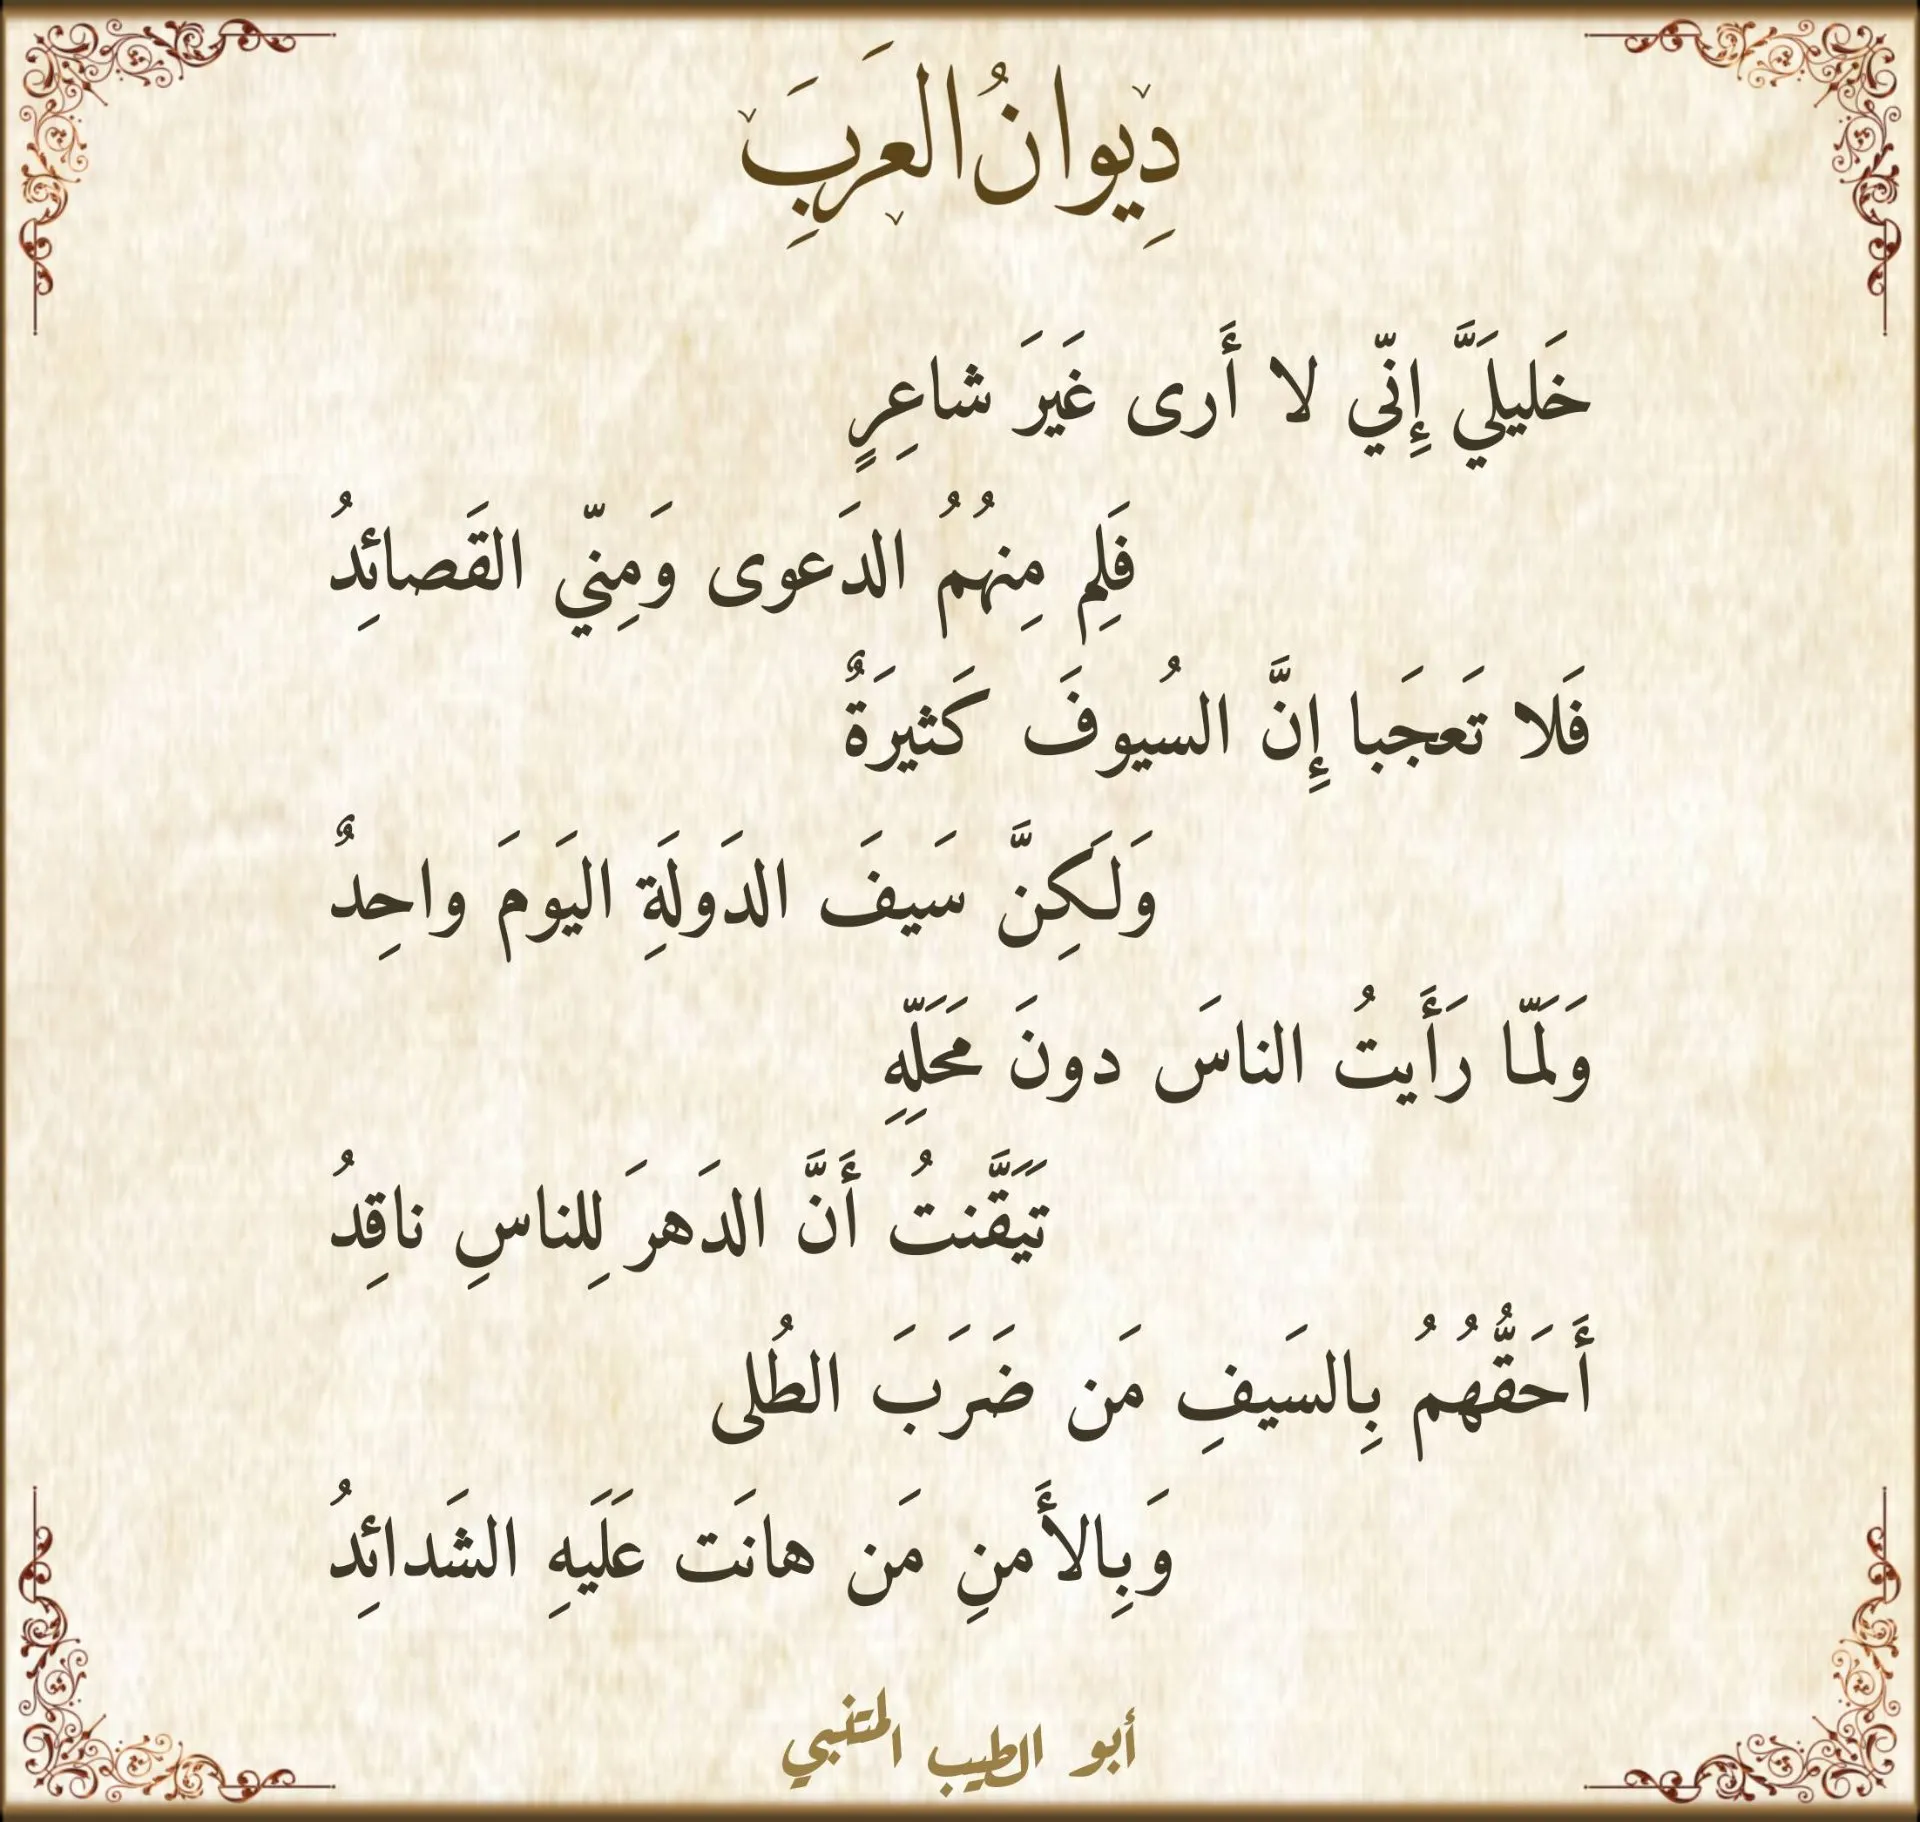 دِيوانُ العَرَبِ
خَليلَيَّ إِنّي لا أَرى غَيرَ شاعِرٍ
فَلِم مِنهُمُ الدَعوى وَمِنّي القَصائِدُ
فَلا تَعجَبا إِنَّ السُيوفَ كَثيرَةٌ
وَلَكِنَّ سَيفَ الدَولَةِ اليَومَ واحِدٌ
وَلَمّا رَأَيتُ الناسَ دونَ مَحَلِّهِ
تَيَقَّنتُ أَنَّ الدَهرَ لِلناسِ ناقِدُ
أَحَقُّهُمُ بِالسَيفِ مَن ضَرَبَ الطُلى
وَبِالأَمنِ مَن هانَت عَلَيهِ الشَدائِدُ
أبو الطيب المتنبي